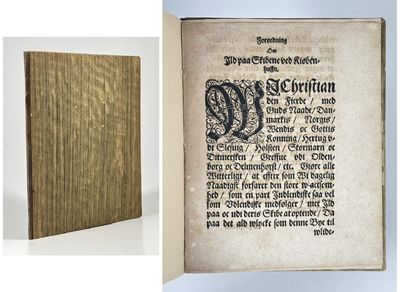 Forordning
Om
Ild paa Skibene ved Kiøben-
haffn.
WI Christian
den Fierde / med
Guds Naade / Dan-
marckis / Norgis /
Wendis oc Gottis
Konning / Hertug u-
di Slesvig / Holsten / Stormarn oc
Ditmersken / Greffue udi Olden-
borg oc Delmenhorst / etc. Giøre alle
Witterligt / at efftersom Wi dagelig
Naadigst forfaret den store wactsom-
hed / som en part Indlendiske saa vel
som Udlendiske medfølger / met Ild
paa oc udi deris Skibe at optende / Da
paa det ald ulycke som denne Bye til